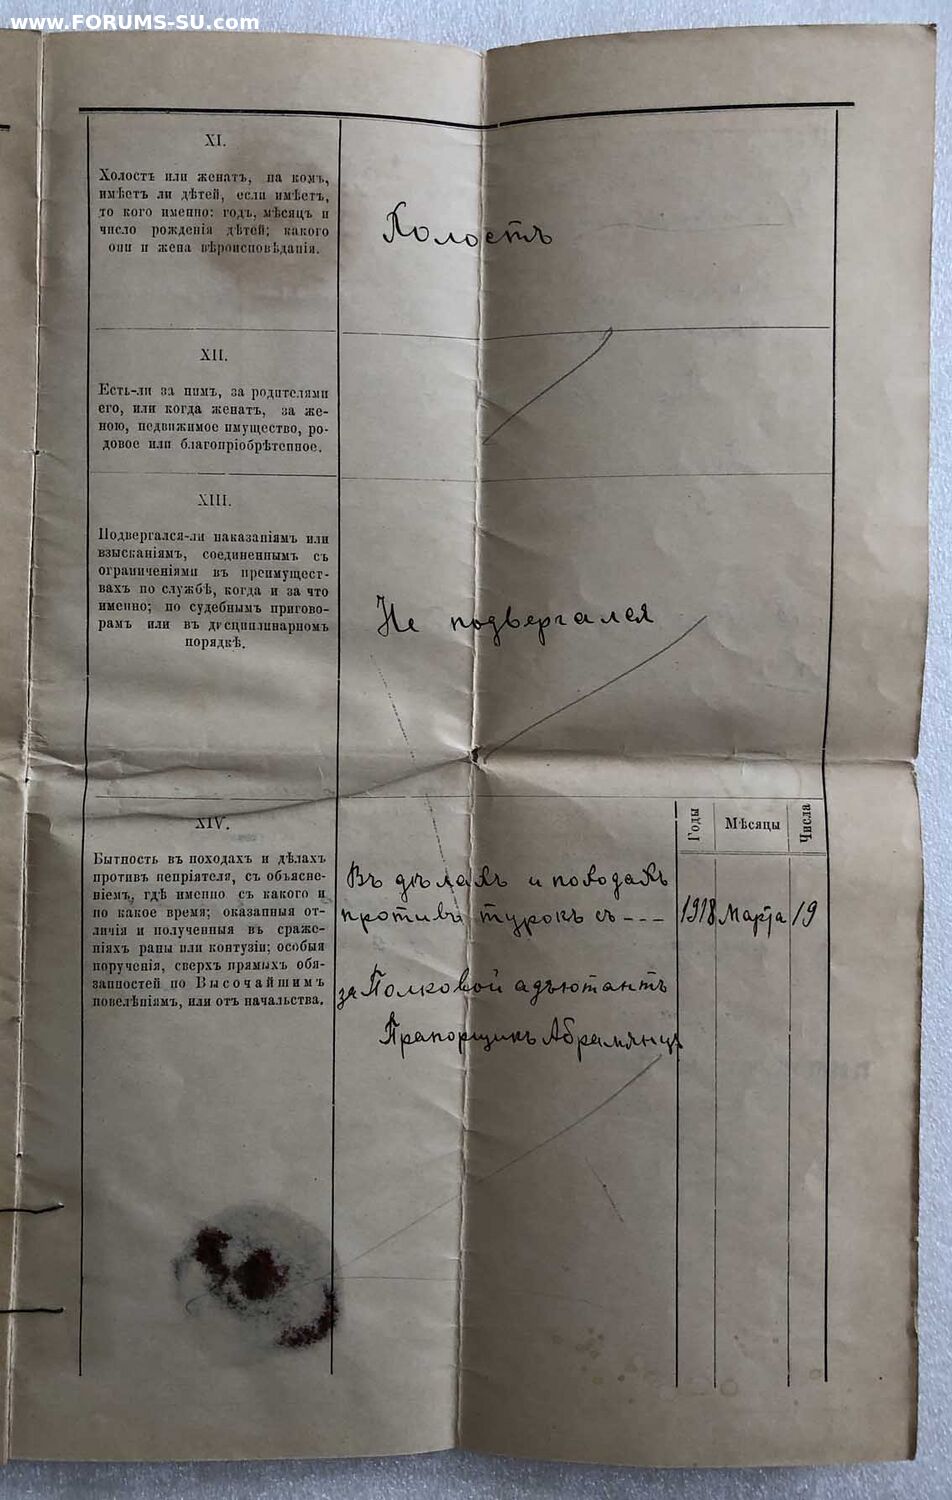 www.FORUMS-SU.com
XI.
Холостъ или женатъ, на комъ,
имѣетъ ли дѣтей, если имѣетъ,
то кого именно: годъ, мѣсяцъ и
число рожденія дѣтей; какого
они и жена вѣроисповѣданія.
Холостъ
XII.
Есть-ли за нимъ, за родителями
его, или когда женатъ, за же-
ною, недвижимое имущество, ро-
довое или благопріобрѣтенное.
XIII.
Подвергался-ли наказаніямъ или
взысканіямъ, соединеннымъ съ
ограниченіями въ преимущест-
вахъ по службѣ, когда и за что
именно; по судебнымъ пригово-
рамъ или въ дисциплинарномъ
порядкѣ.
Не подвергался
XIV.
Бытность въ походахъ и дѣлахъ
противъ непріятеля, съ объясне-
ніемъ, гдѣ именно съ какого и
по какое время; оказанныя от-
личія и полученныя въ сраже-
ніяхъ раны или контузіи; особыя
порученія, сверхъ прямыхъ обя-
занностей по Высочайшимъ
повелѣніямъ, или отъ начальства.
Годы
Мѣсяцы
Числа
Въ дѣлахъ и походахъ
противъ турокъ съ - - - 1918 Марта 19
за Полковой адъютантъ
Прапорщикъ Абрамянцъ